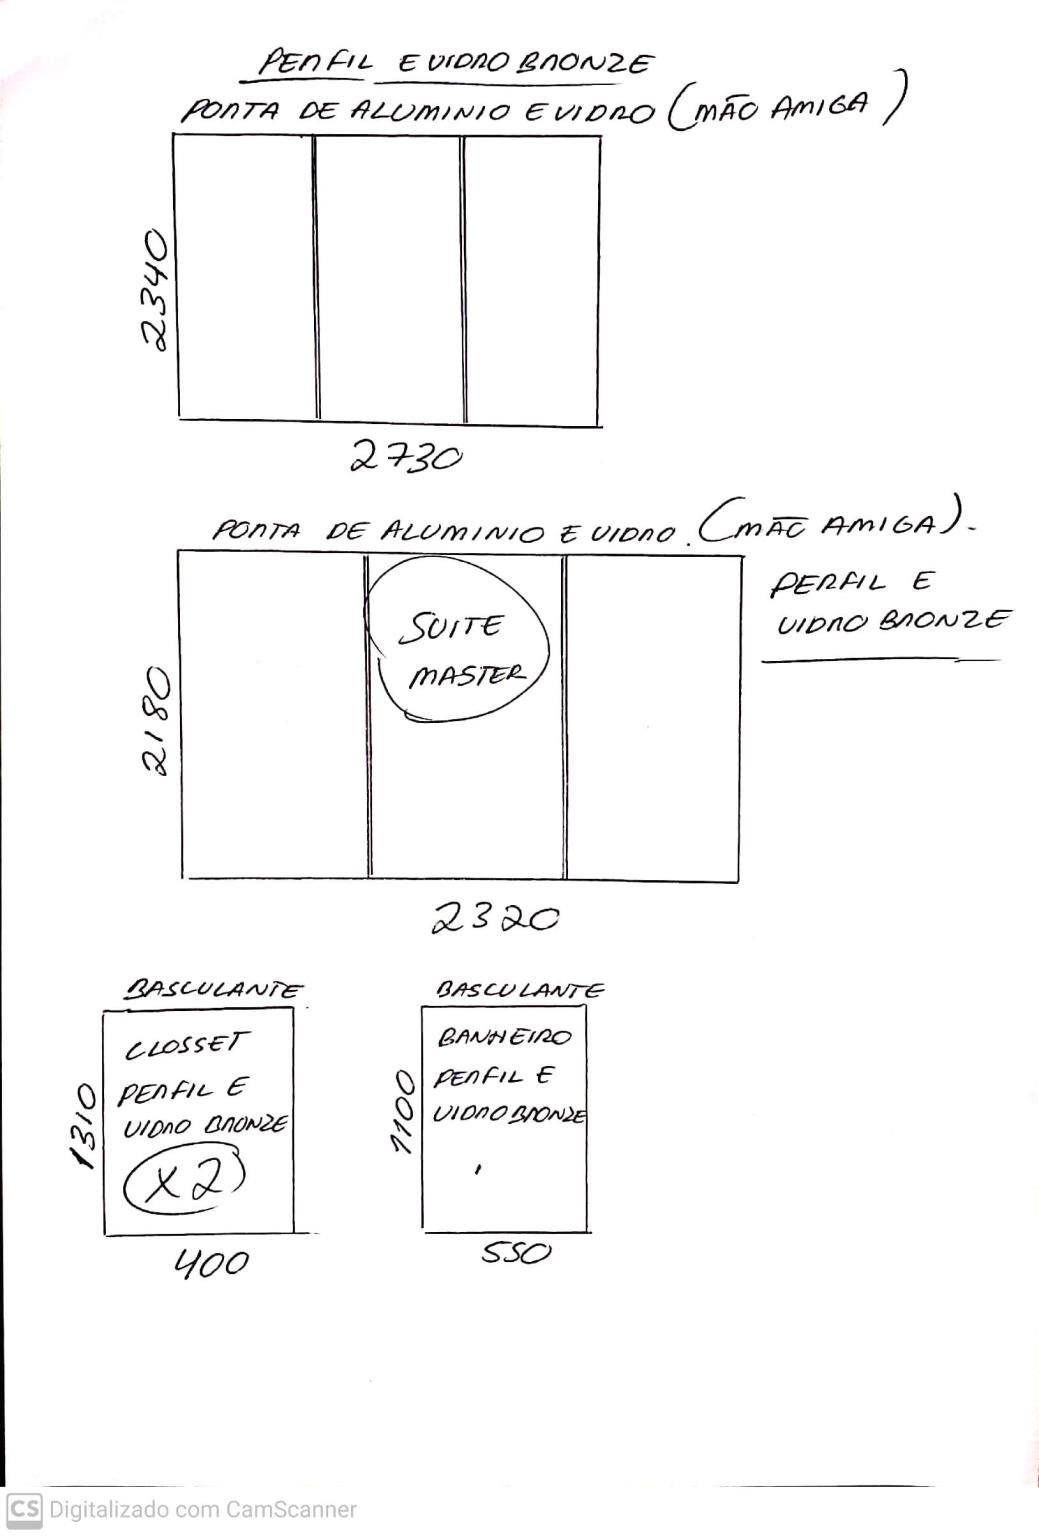 PERFIL E VIDRO BRONZE
PORTA DE ALUMINIO E VIDRO (MÃO AMIGA)
2340
2730
PORTA DE ALUMINIO E VIDRO. (MÃO AMIGA).
PERFIL E
VIDRO BRONZE
SUITE
MASTER
2180
2320
BASCULANTE
CLOSSET
PERFIL E
VIDRO BRONZE
X2
1310
400
BASCULANTE
BANHEIRO
PERFIL E
VIDRO BRONZE
1100
550
CS Digitalizado com CamScanner